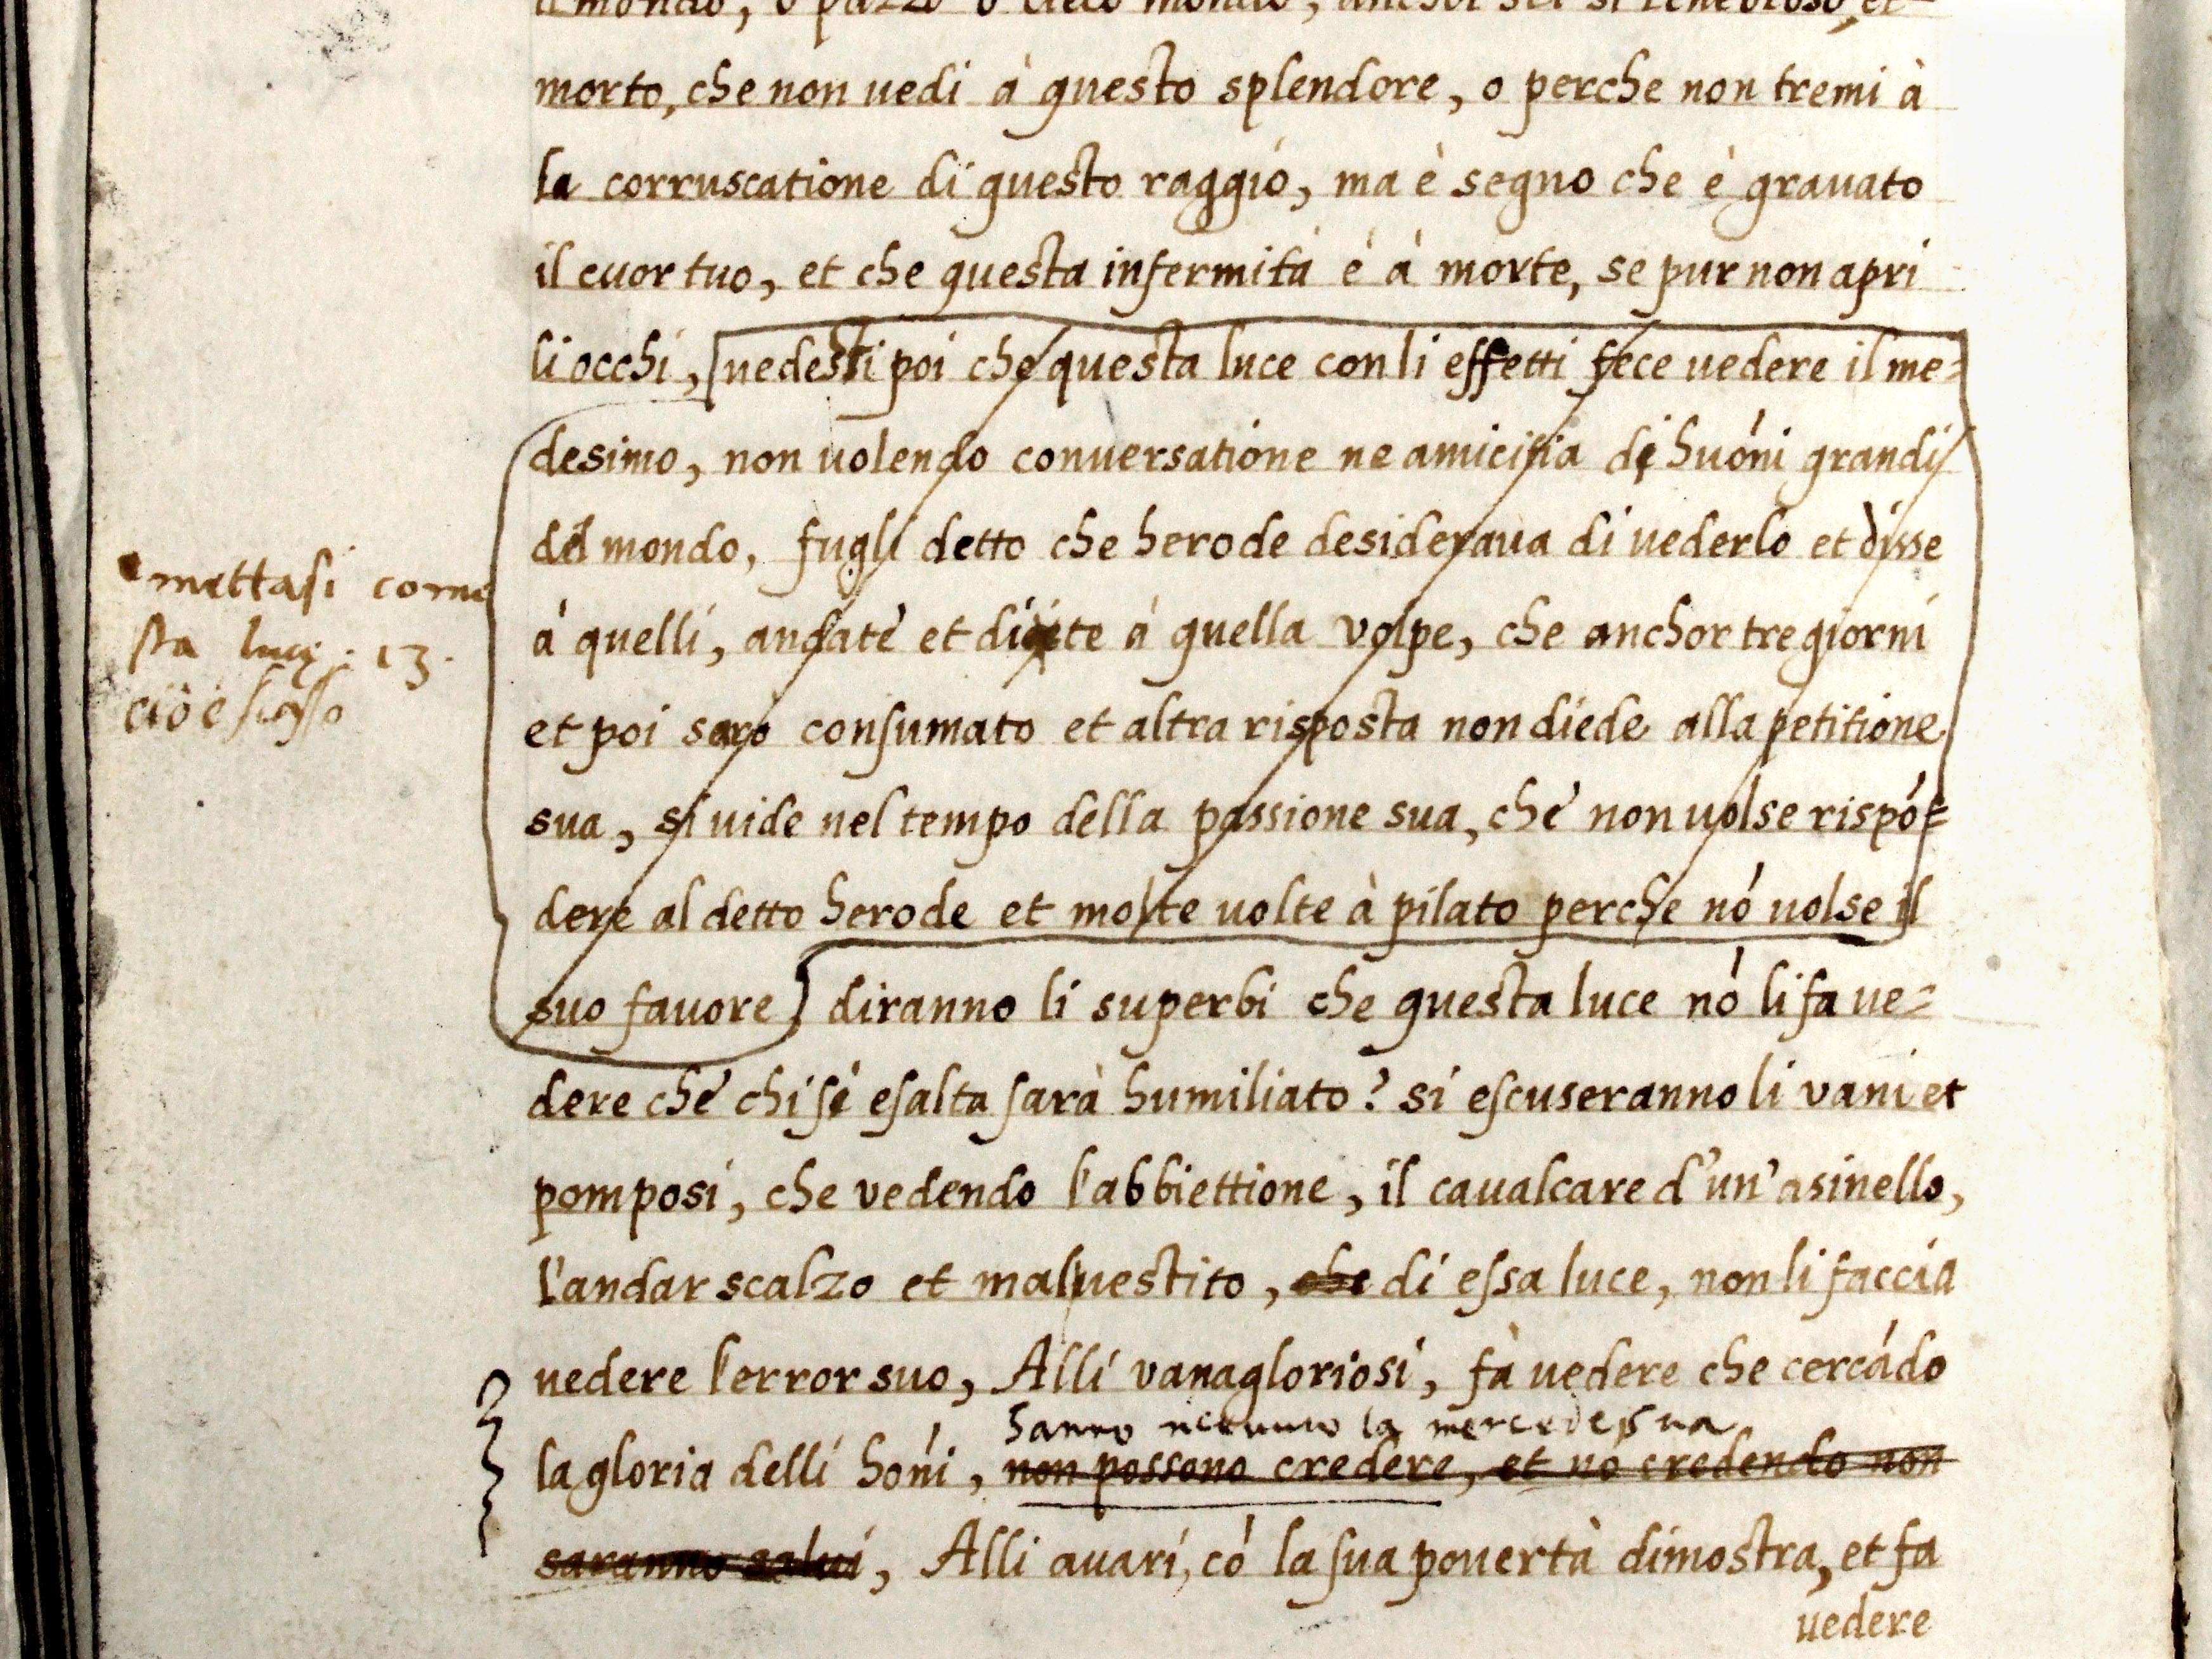 il mondo, o pazzo o cieco mondo, anchor sei si tenebroso, et
morto, che non uedi à questo splendore, o perche non tremi à
la corruscatione di questo raggio, ma è segno che è grauato
il cuor tuo, et che questa infermità è à morte, se pur non apri
li occhi, uedesti poi che questa luce con li effetti fece uedere il me=
desimo, non uolendo conuersatione ne amicitia di huōni grandi
del mondo, fugli detto che herode desideraua di uederlo et disse
à quelli, andate et dicete à quella volpe, che anchor tre giorni
mettasi come
sta luc. 13.
ciò è
et poi saro consumato et altra risposta non diede alla petitione
sua, si uide nel tempo della passione sua, che non uolse rispō=
dere al detto herode et molte uolte à pilato perche nō uolse il
suo fauore diranno li superbi che questa luce nō li fa ue=
dere che chi se esalta sarà humiliato? si escuseranno li vani et
pomposi, che vedendo l'abbiettione, il caualcare d'un'asinello,
l'andar scalzo et mal uestito, che di essa luce, non li faccia
uedere l'error suo, Alli vanagloriosi, fà uedere che cercādo
hanno la mercede sua
la gloria delli hōni, non possono credere, et nō credendo non
saranno salui, Alli auari, cō la sua pouertà dimostra, et fa
uedere